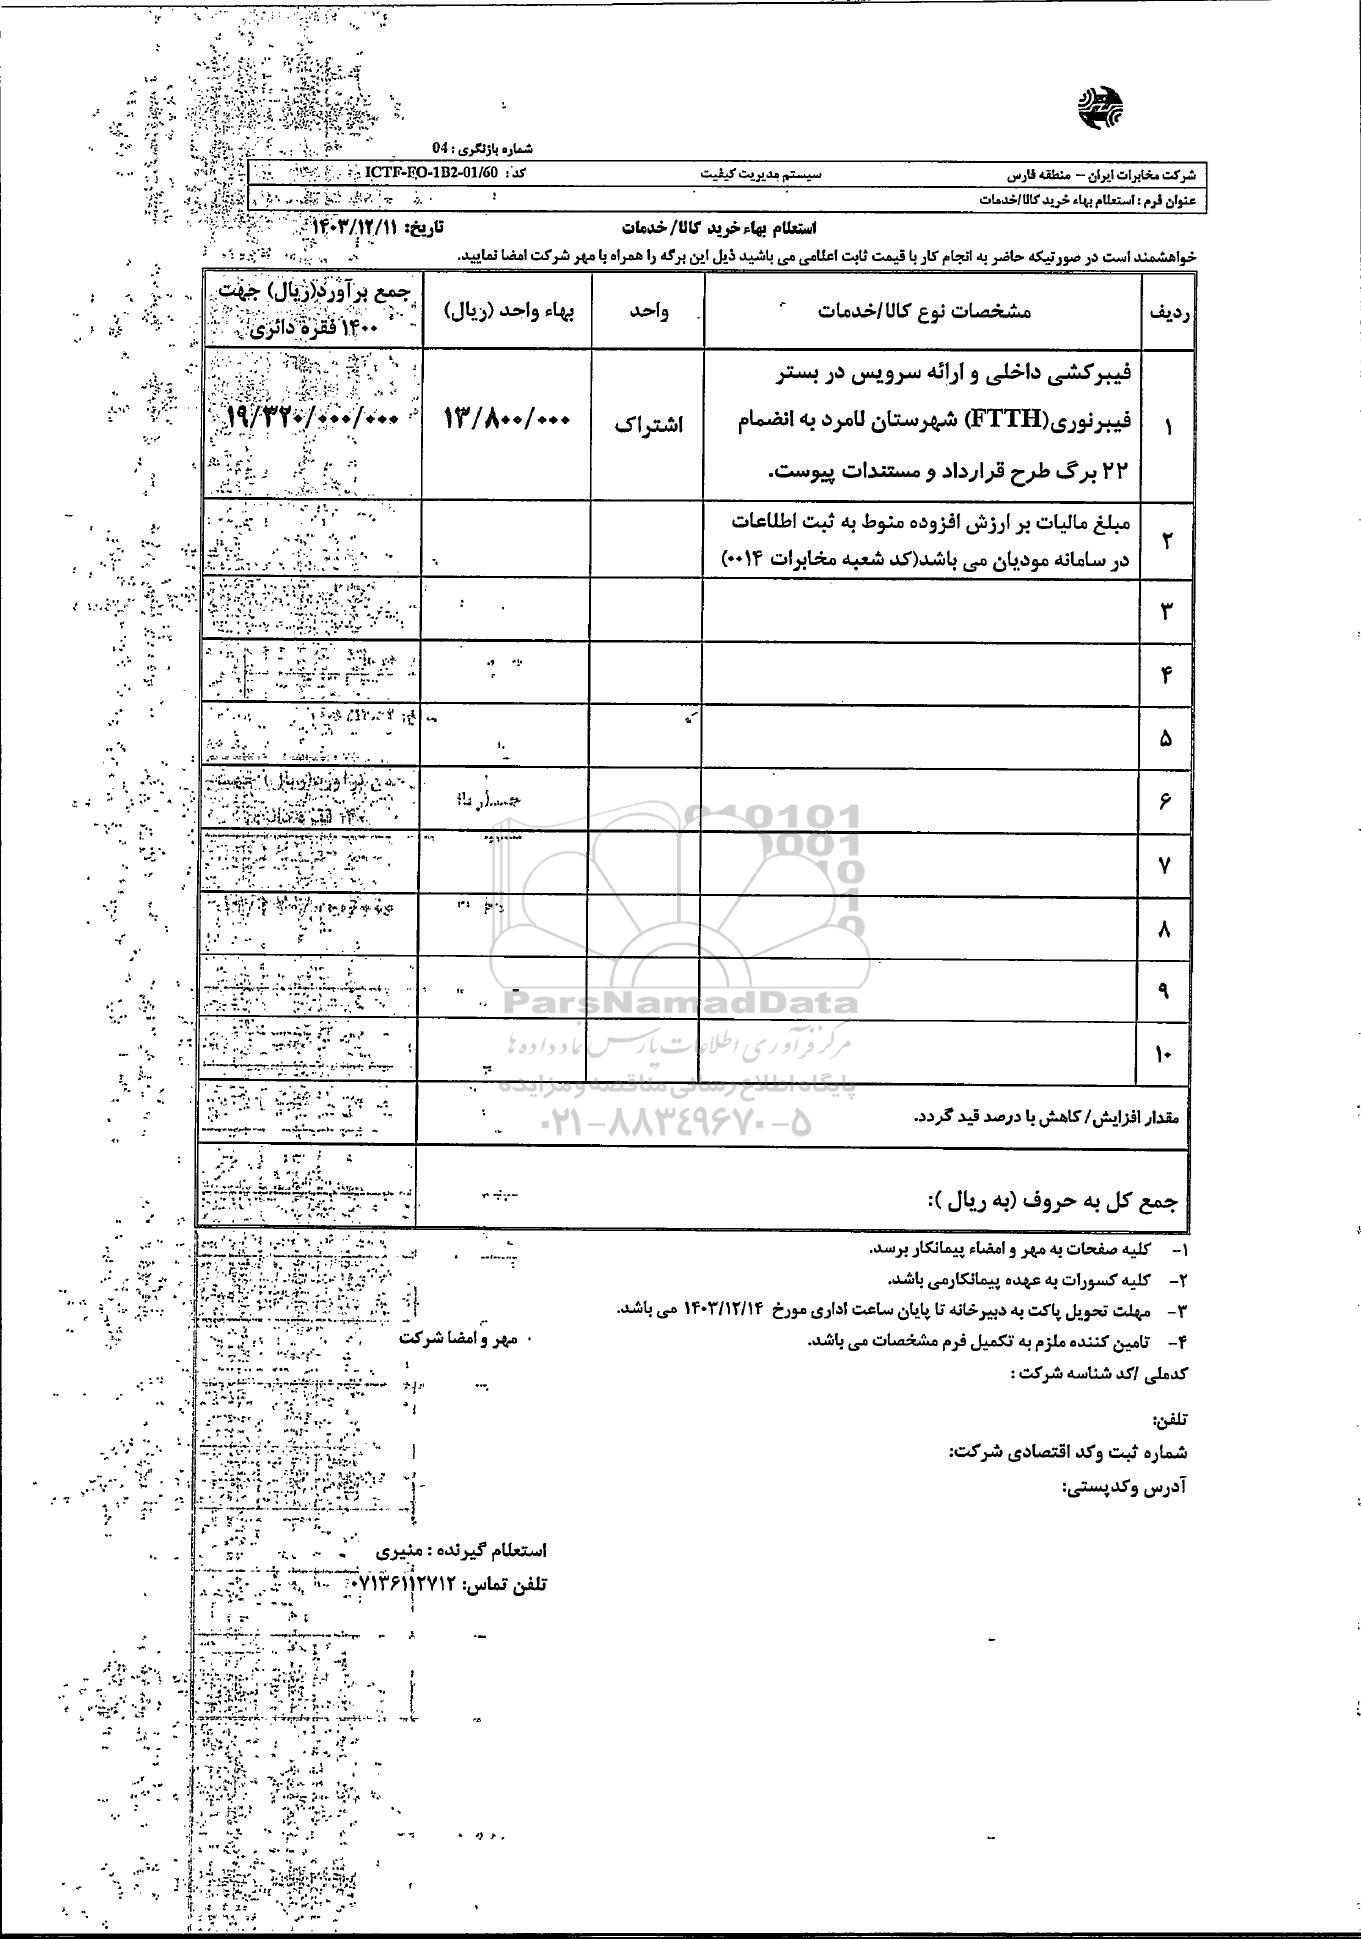 شماره بازنگری : 04
شرکت مخابرات ایران – منطقه فارس سیستم مدیریت کیفیت کد : ICTF-FO-1B2-01/60
عنوان فرم : استعلام بهاء خرید کالا/خدمات
استعلام بهاء خرید کالا/ خدمات تاریخ: ۱۴۰۳/۱۲/۱۱
خواهشمند است در صورتیکه حاضر به انجام کار با قیمت ثابت اعلامی می باشید ذیل این برگه را همراه با مهر شرکت امضا نمایید.
ردیف مشخصات نوع کالا/خدمات واحد بهاء واحد (ریال) جمع برآورد(ریال) جهت
۱۴۰۰ فقره دائری
فیبرکشی داخلی و ارائه سرویس در بستر
۱ فیبرنوری(FTTH) شهرستان لامرد به انضمام اشتراک ۱۳/۸۰۰/۰۰۰ ۱۹/۳۲۰/۰۰۰/۰۰۰
۲۲ برگ طرح قرارداد و مستندات پیوست.
۲ مبلغ مالیات بر ارزش افزوده منوط به ثبت اطلاعات
در سامانه مودیان می باشد(کد شعبه مخابرات ۰۰۱۴)
۳
۴
۵
۶
۷
۸
۹
۱۰
010101
ParsNamadData
مرکز فرآوری اطلاعات پارس نماد داده ها
پایگاه اطلاع رسانی مناقصه و مزایده
۰۲۱-۸۸۳۴۹۶۷۰-۵
مقدار افزایش/ کاهش با درصد قید گردد.
جمع کل به حروف (به ریال ):
۱- کلیه صفحات به مهر و امضاء پیمانکار برسد.
۲- کلیه کسورات به عهده پیمانکارمی باشد.
۳- مهلت تحویل پاکت به دبیرخانه تا پایان ساعت اداری مورخ ۱۴۰۳/۱۲/۱۴ می باشد.
۴- تامین کننده ملزم به تکمیل فرم مشخصات می باشد. مهر و امضا شرکت
کدملی /کد شناسه شرکت :
تلفن:
شماره ثبت وکد اقتصادی شرکت:
آدرس وکدپستی:
استعلام گیرنده : منیری
تلفن تماس: ۰۷۱۳۶۱۱۲۷۱۲